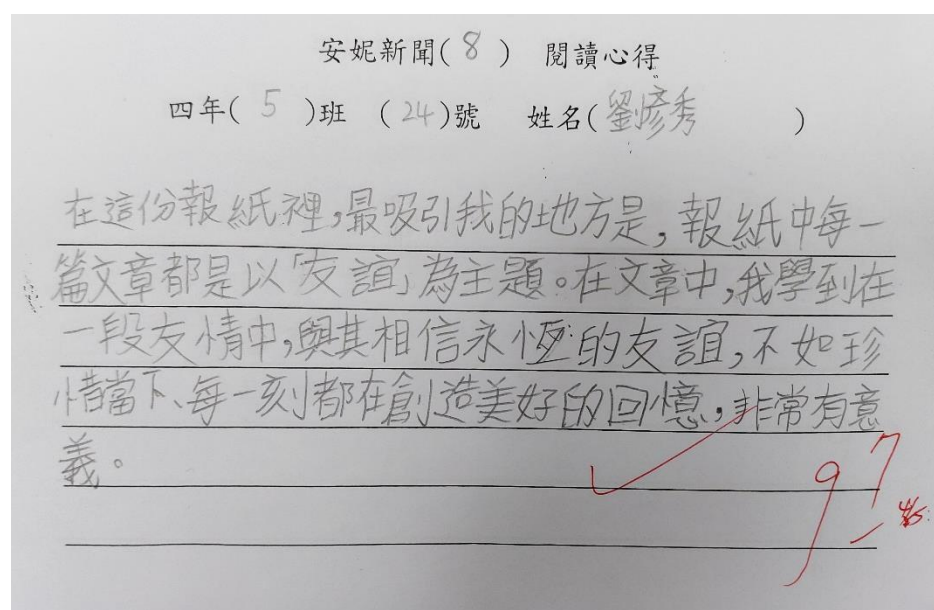 安妮新聞(8) 閱讀心得
四年(5)班 (24)號 姓名(劉彥秀)
在這份報紙裡,最吸引我的地方是,報紙中每一
篇文章都是以「友誼」為主題。在文章中,我學到在
一段友情中,與其相信永恆的友誼,不如珍
惜當下、每一刻都在創造美好的回憶,非常有意
義。
97